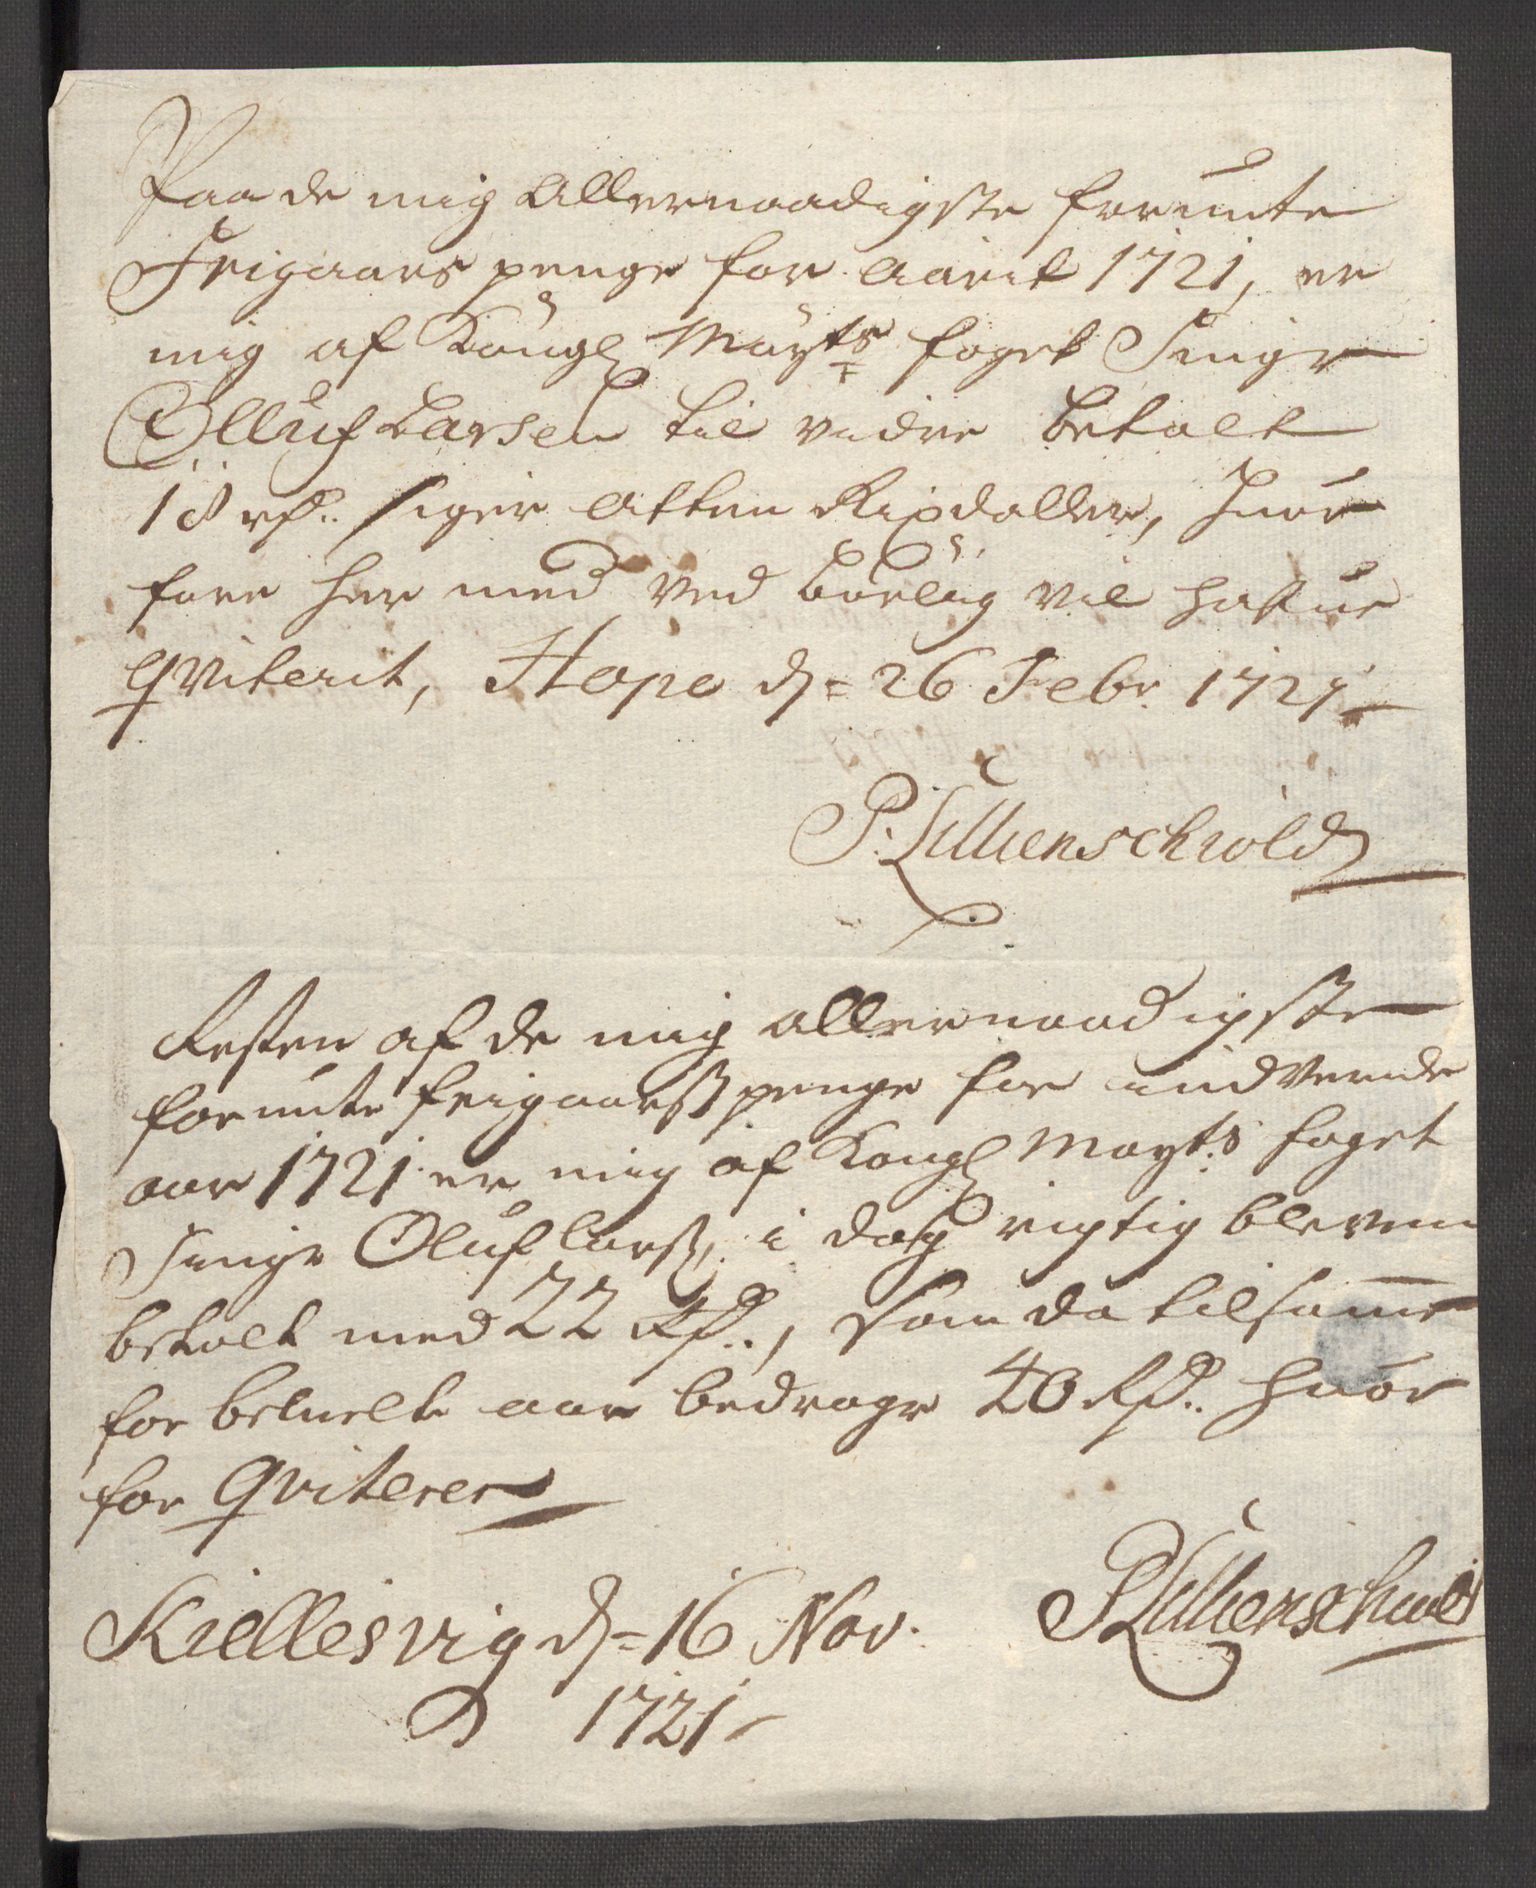 Paa de mig Allernaadigste forunte
Frigaars penge for Aarit 1721, er
mig af Kongl Mayts foget Seigr
Olluf Larsen til vidre betalt
18 rd. siger Atten Rixdaller, huor
fore her med ved börlig vil hafue
qviterit, Hope d= 26 Febr. 1721
P: Lillienschiold
Resten af de mig allernaadigste
forunte frigaardss penge for indverende
aar 1721 er mig af Kongl Mayts foget
Seigr Oluf Larss, i dag rigtig bleven
betalt med 22 Rd., som da tilsamme
for bemelte aar bedrager 40 Rd. huor
for qviterer
Kiellesvig d= 16 Nov.
1721
P Lillienschiold